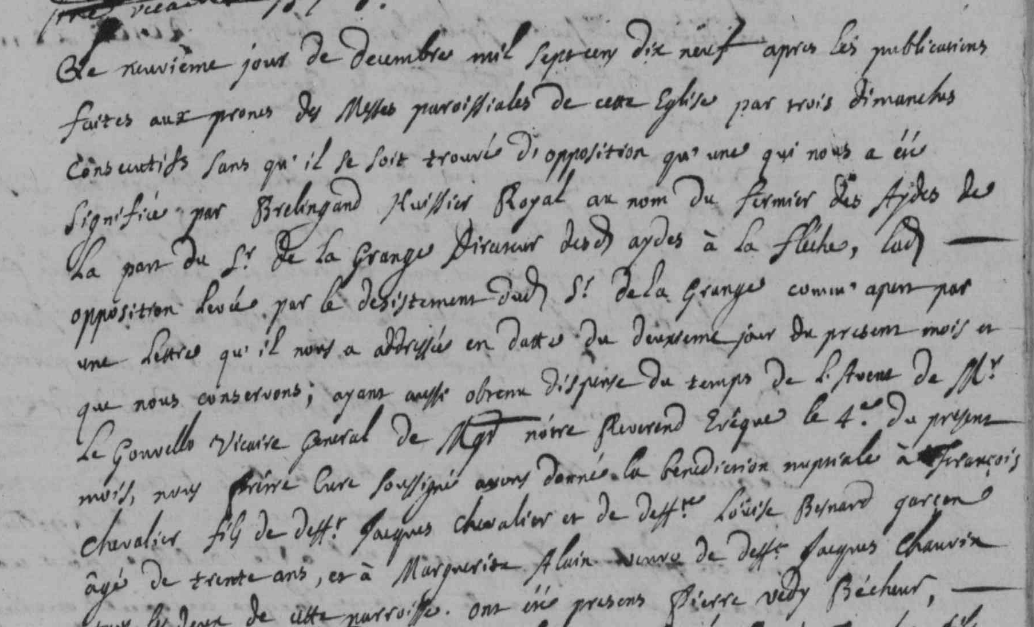 Le neuvième jour de decembre mil sept cens dix neuf apres les publications
faites aux prones des Messes paroissiales de cette Eglise par trois dimanches
consecutifs sans qu'il se soit trouvé d'opposition qu'une qui nous a été
signifiée par Brelingand Huissier Royal au nom du fermier des Aydes de
la part du Sr de la Grange Directeur desd aydes à la flêche, lad
opposition levée par le desistement dud Sr de la Grange comm' apert par
une lettre qu'il nous a addressée en datte du deuxieme jour du present mois et
que nous conservons; ayant aussi obtenu dispense du temps de l'Avent de Mr
le Gouvello Vicaire General de Mgr nôtre Reverend Evêque le 4e du present
mois, nous prêtre Curé soussigné avons donné la benediction nuptiale à François
Chevalier fils de defft Jacques Chevalier et de deffte Loüise Besnard garçon
âgé de trente ans, et à Marguerite Alain veuve de defft Jacques Chauvin
tous les deux de cette parroisse. ont été presens Pierre Vedy Bécheur,